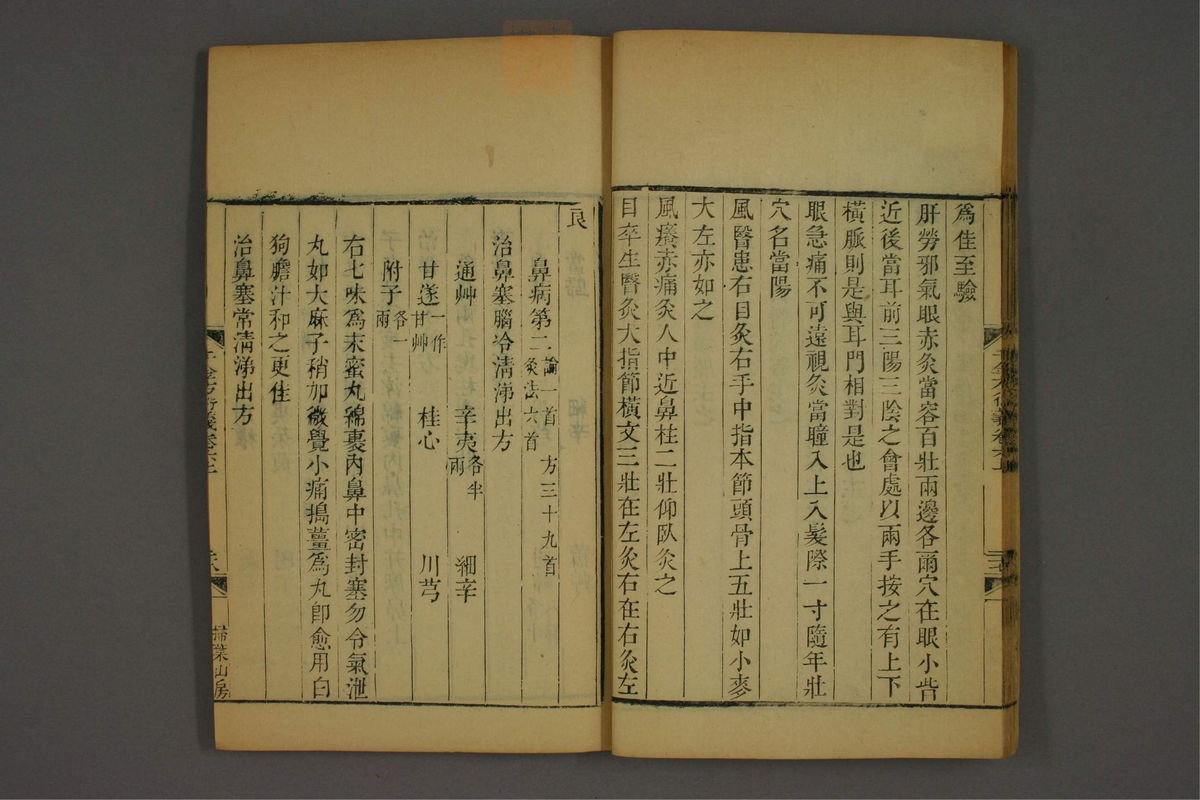 爲佳至驗
肝勞邪氣眼赤灸當容百壯兩邊各爾穴在眼小眥
近後當耳前三陽三陰之會處以兩手按之有上下
橫脈則是與耳門相對是也
眼急痛不可遠視灸當瞳入上入髮際一寸隨年壯
穴名當陽
風翳患右目灸右手中指本節頭骨上五壯如小麥
大左亦如之
風癢赤痛灸人中近鼻柱二壯仰臥灸之
目卒生翳灸大指節橫文三壯在左灸右在右灸左
良
鼻病第二 論一首 方三十九首 灸法六首
治鼻塞腦冷清涕出方
通艸 辛夷各半兩 細辛
甘遂一作甘艸 桂心 川芎
附子各一兩
右七味爲末蜜丸綿裹內鼻中密封塞勿令氣泄
丸如大麻子稍加微覺小痛搗薑爲丸卽愈用白
狗膽汁和之更佳
治鼻塞常清涕出方
千金方衍義卷六上
掃葉山房